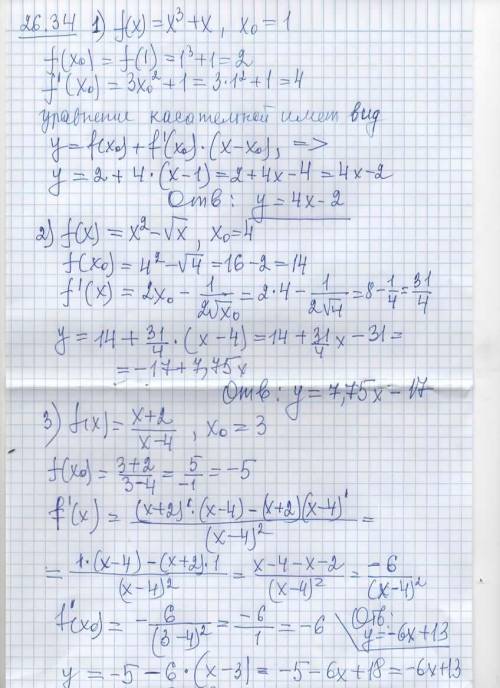 26.34 1) f(x) = x³ + x, x₀ = 1
f(x₀) = f(1) = 1³ + 1 = 2
f'(x₀) = 3x₀² + 1 = 3·1² + 1 = 4
уравнение касательной имеет вид
y = f(x₀) + f'(x₀)·(x - x₀), =>
y = 2 + 4·(x - 1) = 2 + 4x - 4 = 4x - 2
Ответ: y = 4x - 2
2) f(x) = x² - √x, x₀ = 4
f(x₀) = 4² - √4 = 16 - 2 = 14
f'(x) = 2x₀ - 1/(2√x₀) = 2·4 - 1/(2√4) = 8 - 1/4 = 31/4
y = 14 + 31/4·(x - 4) = 14 + 31/4x - 31 =
= -17 + 7,75x
Ответ: y = 7,75x - 17
3) f(x) = (x+2)/(x-4), x₀ = 3
f(x₀) = (3+2)/(3-4) = 5/-1 = -5
f'(x) = ((x+2)'·(x-4) - (x+2)(x-4)')/(x-4)² =
= (1·(x-4) - (x+2)·1)/(x-4)² = (x-4-x-2)/(x-4)² = -6/(x-4)²
f'(x₀) = -6/(3-4)² = -6/1 = -6
Отв: y = -6x + 13
y = -5 - 6·(x - 3) = -5 - 6x + 18 = -6x + 13